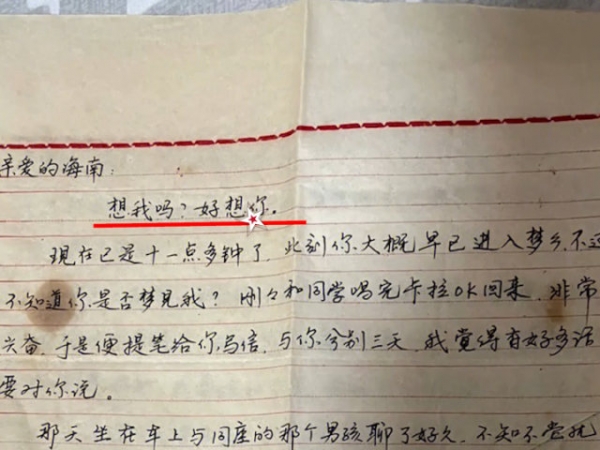 亲爱的海南:
想我吗?好想你。
现在已是十一点多钟了,此刻你大概早已进入梦乡,不过
不知道你是否梦见我?刚々和同学唱完卡拉OK回来,非常
兴奋,于是便提笔给你写信,与你分别三天,我觉得有好多话
要对你说。
那天坐在车上与同座的那个男孩聊了好久,不知不觉就